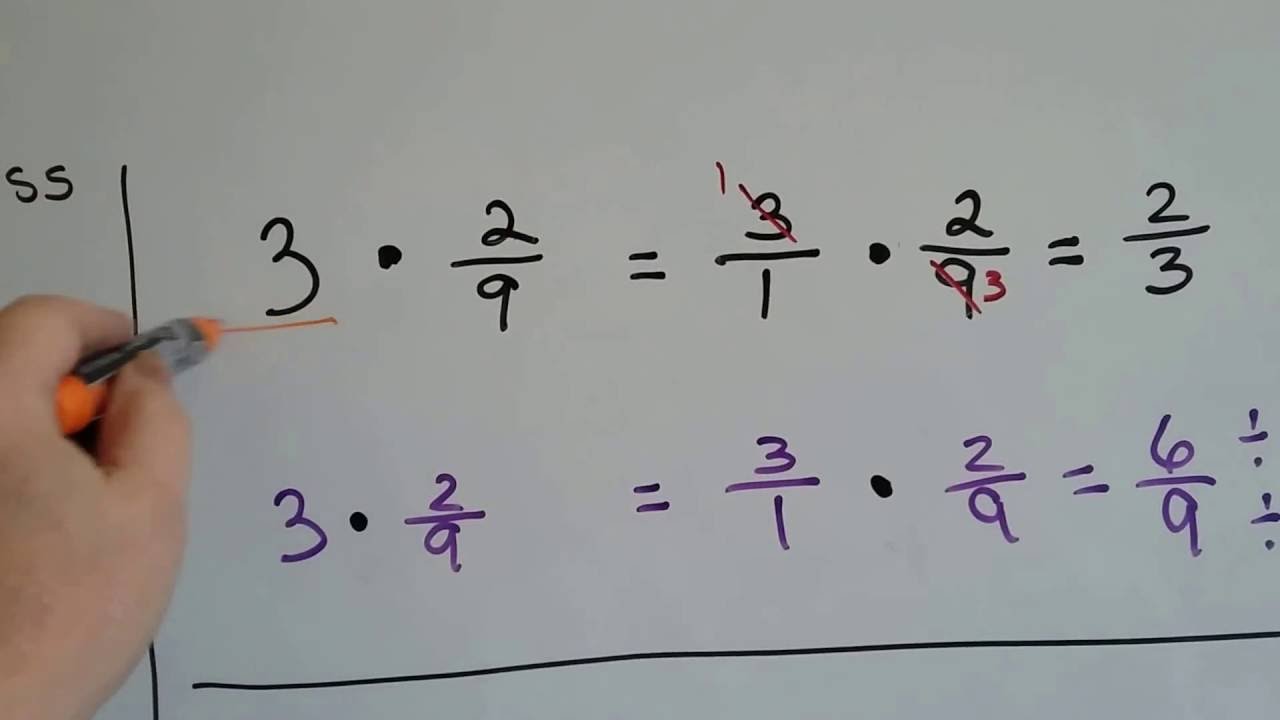 ss
3 · 2/9 = 1 3/1 · 2/9 3 = 2/3
3 · 2/9 = 3/1 · 2/9 = 6/9 ÷ ÷